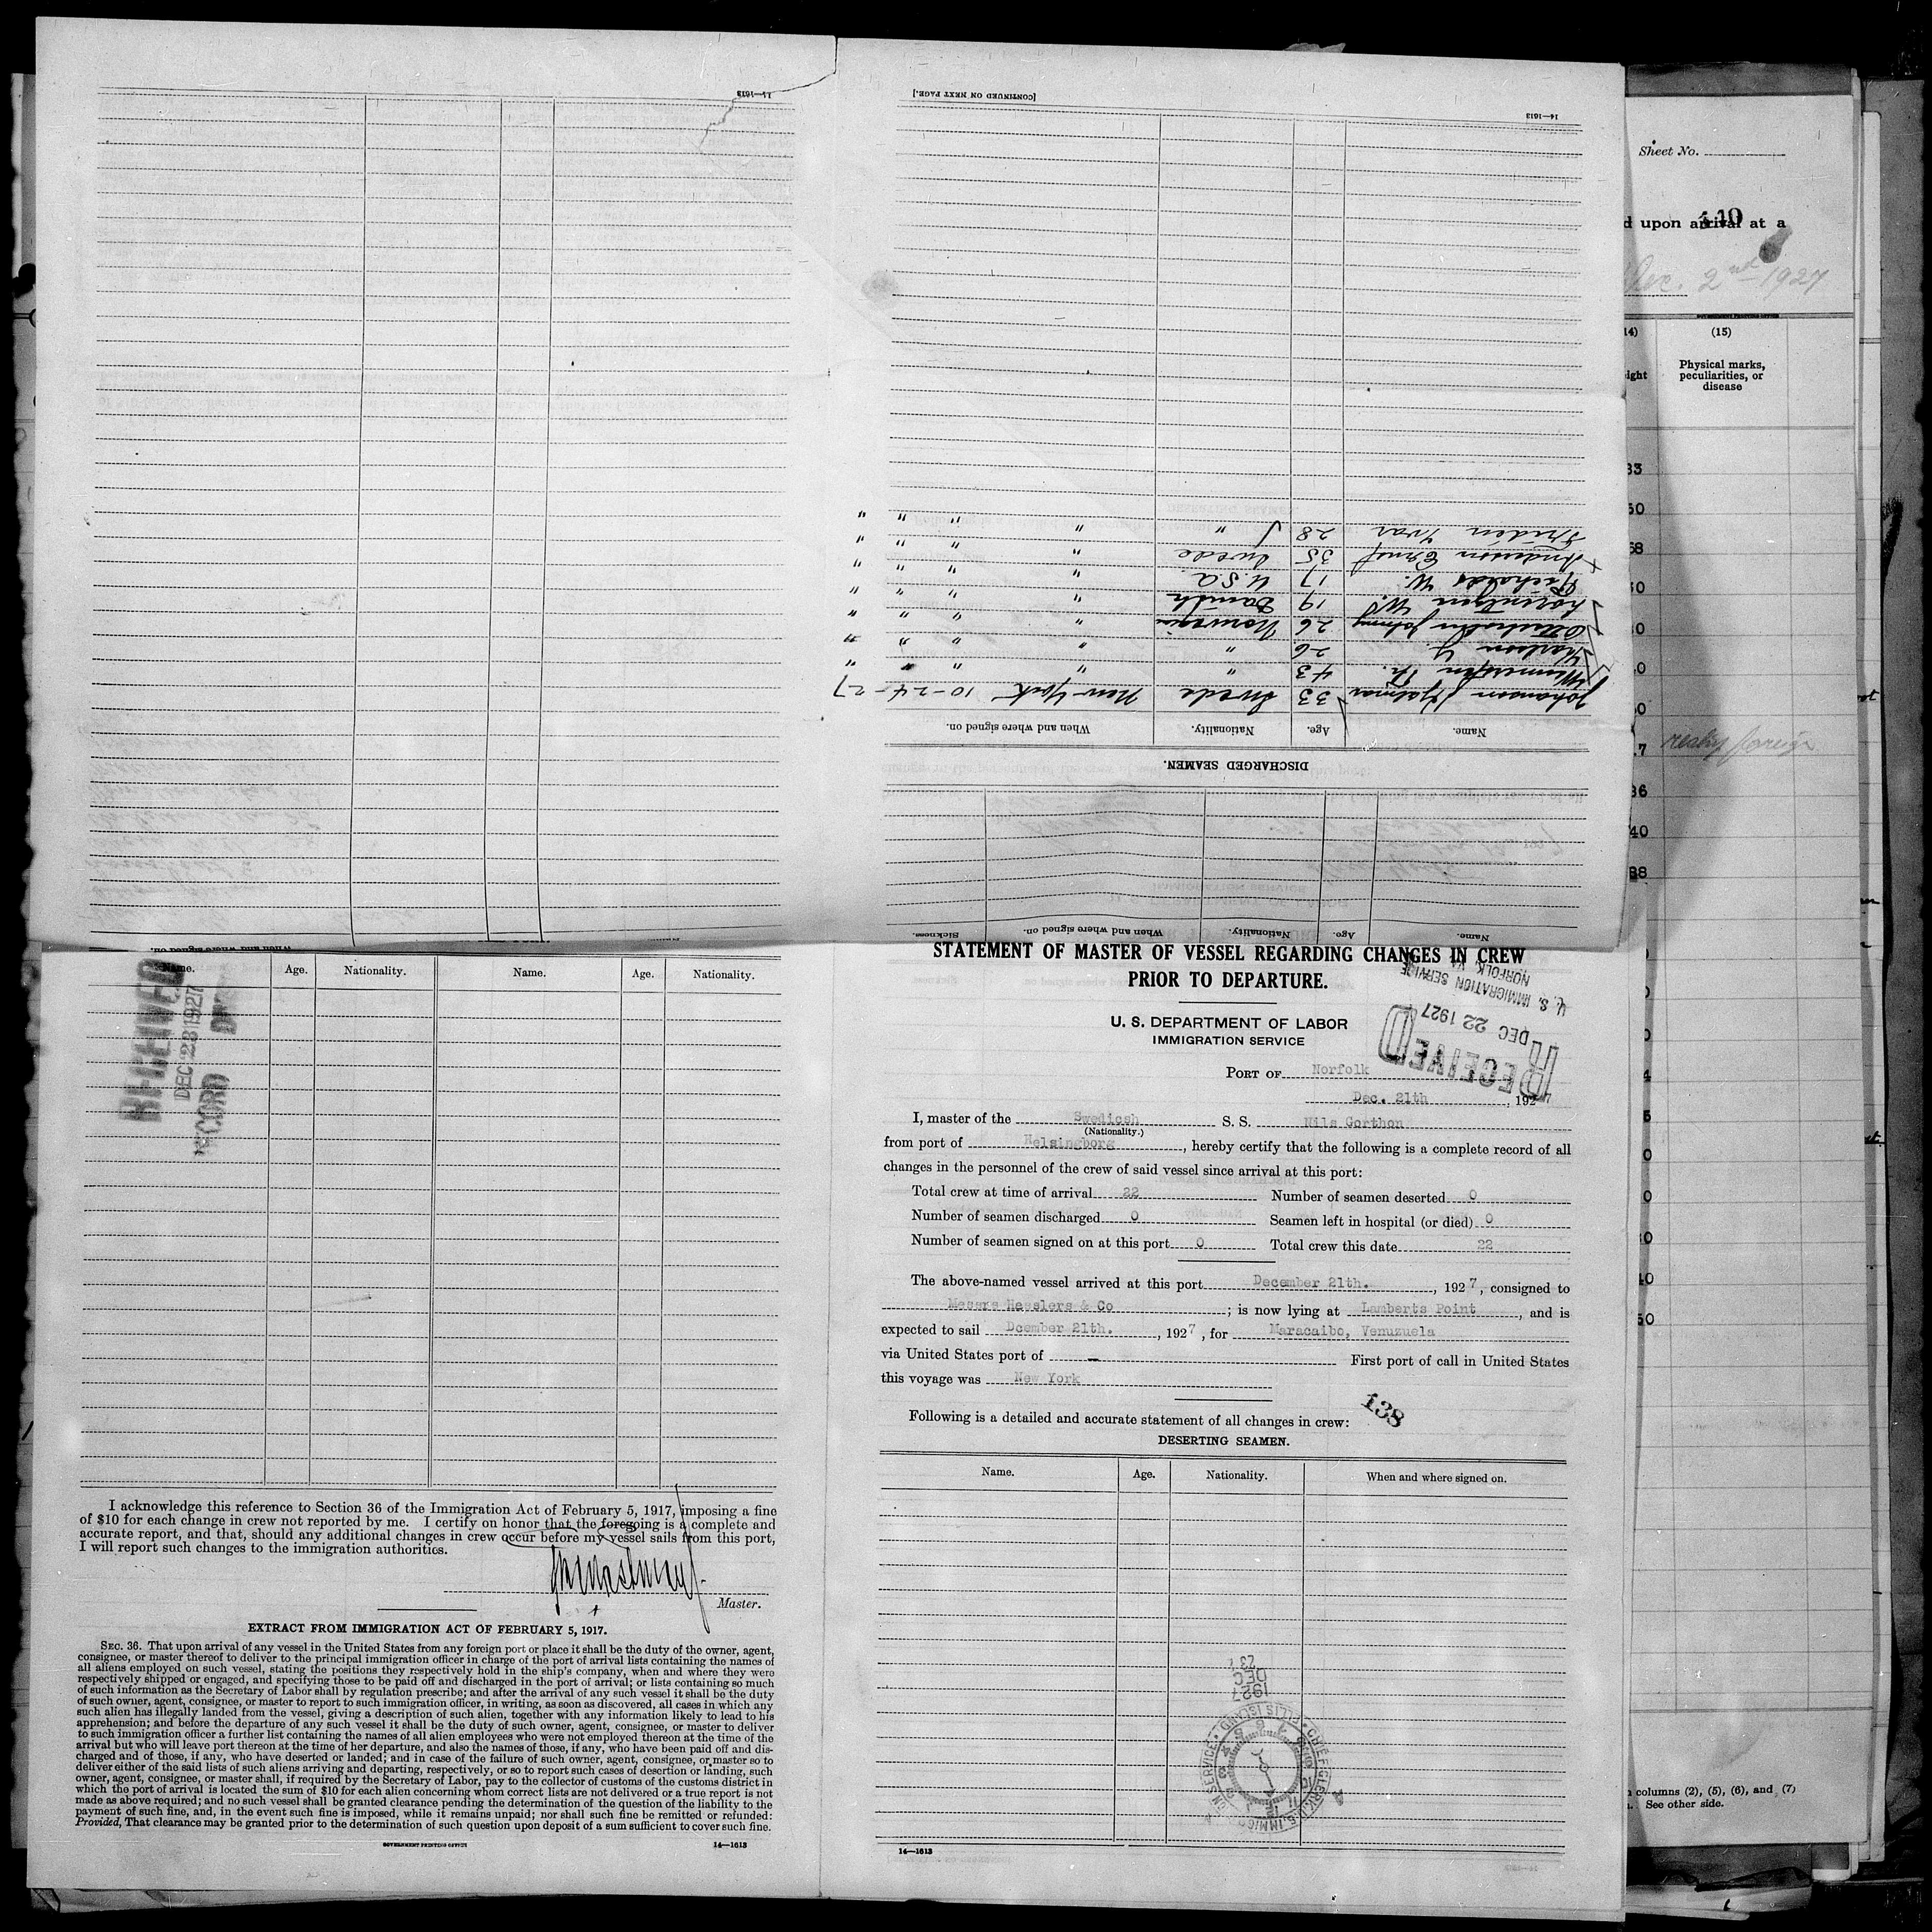 14—1613
[CONTINUED ON NEXT PAGE.]
14—1613
DISCHARGED SEAMEN.
Name. Age. Nationality. When and where signed on.
Johansson Hjalmar 33 Swede New-York 10-24-27
43 " " " " "
Karlson G. 26 " " " " "
Johnny 26 Norwegian " " " "
Lorentzen W. 19 Danish " " " "
Richards W. 17 U.S.A. " " " "
Anderson Ernst 35 Swede " " " "
Fridén Ivar 28 " " " " "
Name. Age. Nationality. When and where signed on. Sickness.
Sheet No.
d upon arrival at a
110
Dec. 2nd 1927
14) (15)
ight
Physical marks, peculiarities, or disease
columns (2), (5), (6), and (7)
See other side.
When and where signed on.
Name. Age. Nationality. Name. Age. Nationality.
DEC 23 1927
RECORD
I acknowledge this reference to Section 36 of the Immigration Act of February 5, 1917, imposing a fine
of $10 for each change in crew not reported by me. I certify on honor that the foregoing is a complete and
accurate report, and that, should any additional changes in crew occur before my vessel sails from this port,
I will report such changes to the immigration authorities.
Master.
EXTRACT FROM IMMIGRATION ACT OF FEBRUARY 5, 1917.
SEC. 36. That upon arrival of any vessel in the United States from any foreign port or place it shall be the duty of the owner, agent,
consignee, or master thereof to deliver to the principal immigration officer in charge of the port of arrival lists containing the names of
all aliens employed on such vessel, stating the positions they respectively hold in the ship's company, when and where they were
respectively shipped or engaged, and specifying those to be paid off and discharged in the port of arrival; or lists containing so much
of such information as the Secretary of Labor shall by regulation prescribe; and after the arrival of any such vessel it shall be the duty
of such owner, agent, consignee, or master to report to such immigration officer, in writing, as soon as discovered, all cases in which any
such alien has illegally landed from the vessel, giving a description of such alien, together with any information likely to lead to his
apprehension; and before the departure of any such vessel it shall be the duty of such owner, agent, consignee, or master to deliver
to such immigration officer a further list containing the names of all alien employees who were not employed thereon at the time of the
arrival but who will leave port thereon at the time of her departure, and also the names of those, if any, who have been paid off and dis-
charged and of those, if any, who have deserted or landed; and in case of the failure of such owner, agent, consignee, or master so to
deliver either of the said lists of such aliens arriving and departing, respectively, or so to report such cases of desertion or landing, such
owner, agent, consignee, or master shall, if required by the Secretary of Labor, pay to the collector of customs of the customs district in
which the port of arrival is located the sum of $10 for each alien concerning whom correct lists are not delivered or a true report is not
made as above required; and no such vessel shall be granted clearance pending the determination of the question of the liability to the
payment of such fine, and, in the event such fine is imposed, while it remains unpaid; nor shall such fine be remitted or refunded:
Provided, That clearance may be granted prior to the determination of such question upon deposit of a sum sufficient to cover such fine.
GOVERNMENT PRINTING OFFICE 14—1613
STATEMENT OF MASTER OF VESSEL REGARDING CHANGES IN CREW
PRIOR TO DEPARTURE.
U. S. DEPARTMENT OF LABOR
IMMIGRATION SERVICE
U. S. IMMIGRATION SERVICE
NORFOLK, VA.
DEC 22 1927
RECEIVED
PORT OF Norfolk
Dec. 21th, 1927
I, master of the Swedicsh S. S. Nils Gorthon
(Nationality.)
from port of Helsingborg, hereby certify that the following is a complete record of all
changes in the personnel of the crew of said vessel since arrival at this port:
Total crew at time of arrival 22 Number of seamen deserted 0
Number of seamen discharged 0 Seamen left in hospital (or died) 0
Number of seamen signed on at this port 0 Total crew this date 22
The above-named vessel arrived at this port December 21th., 1927, consigned to
Hasslers & Co; is now lying at Lamberts Point, and is
expected to sail Dcember 21th., 1927, for Maracaibo, Venuzuela
via United States port of — First port of call in United States
this voyage was New York
138
Following is a detailed and accurate statement of all changes in crew:
DESERTING SEAMEN.
Name. Age. Nationality. When and where signed on.
1927
DEC
23
14—1613